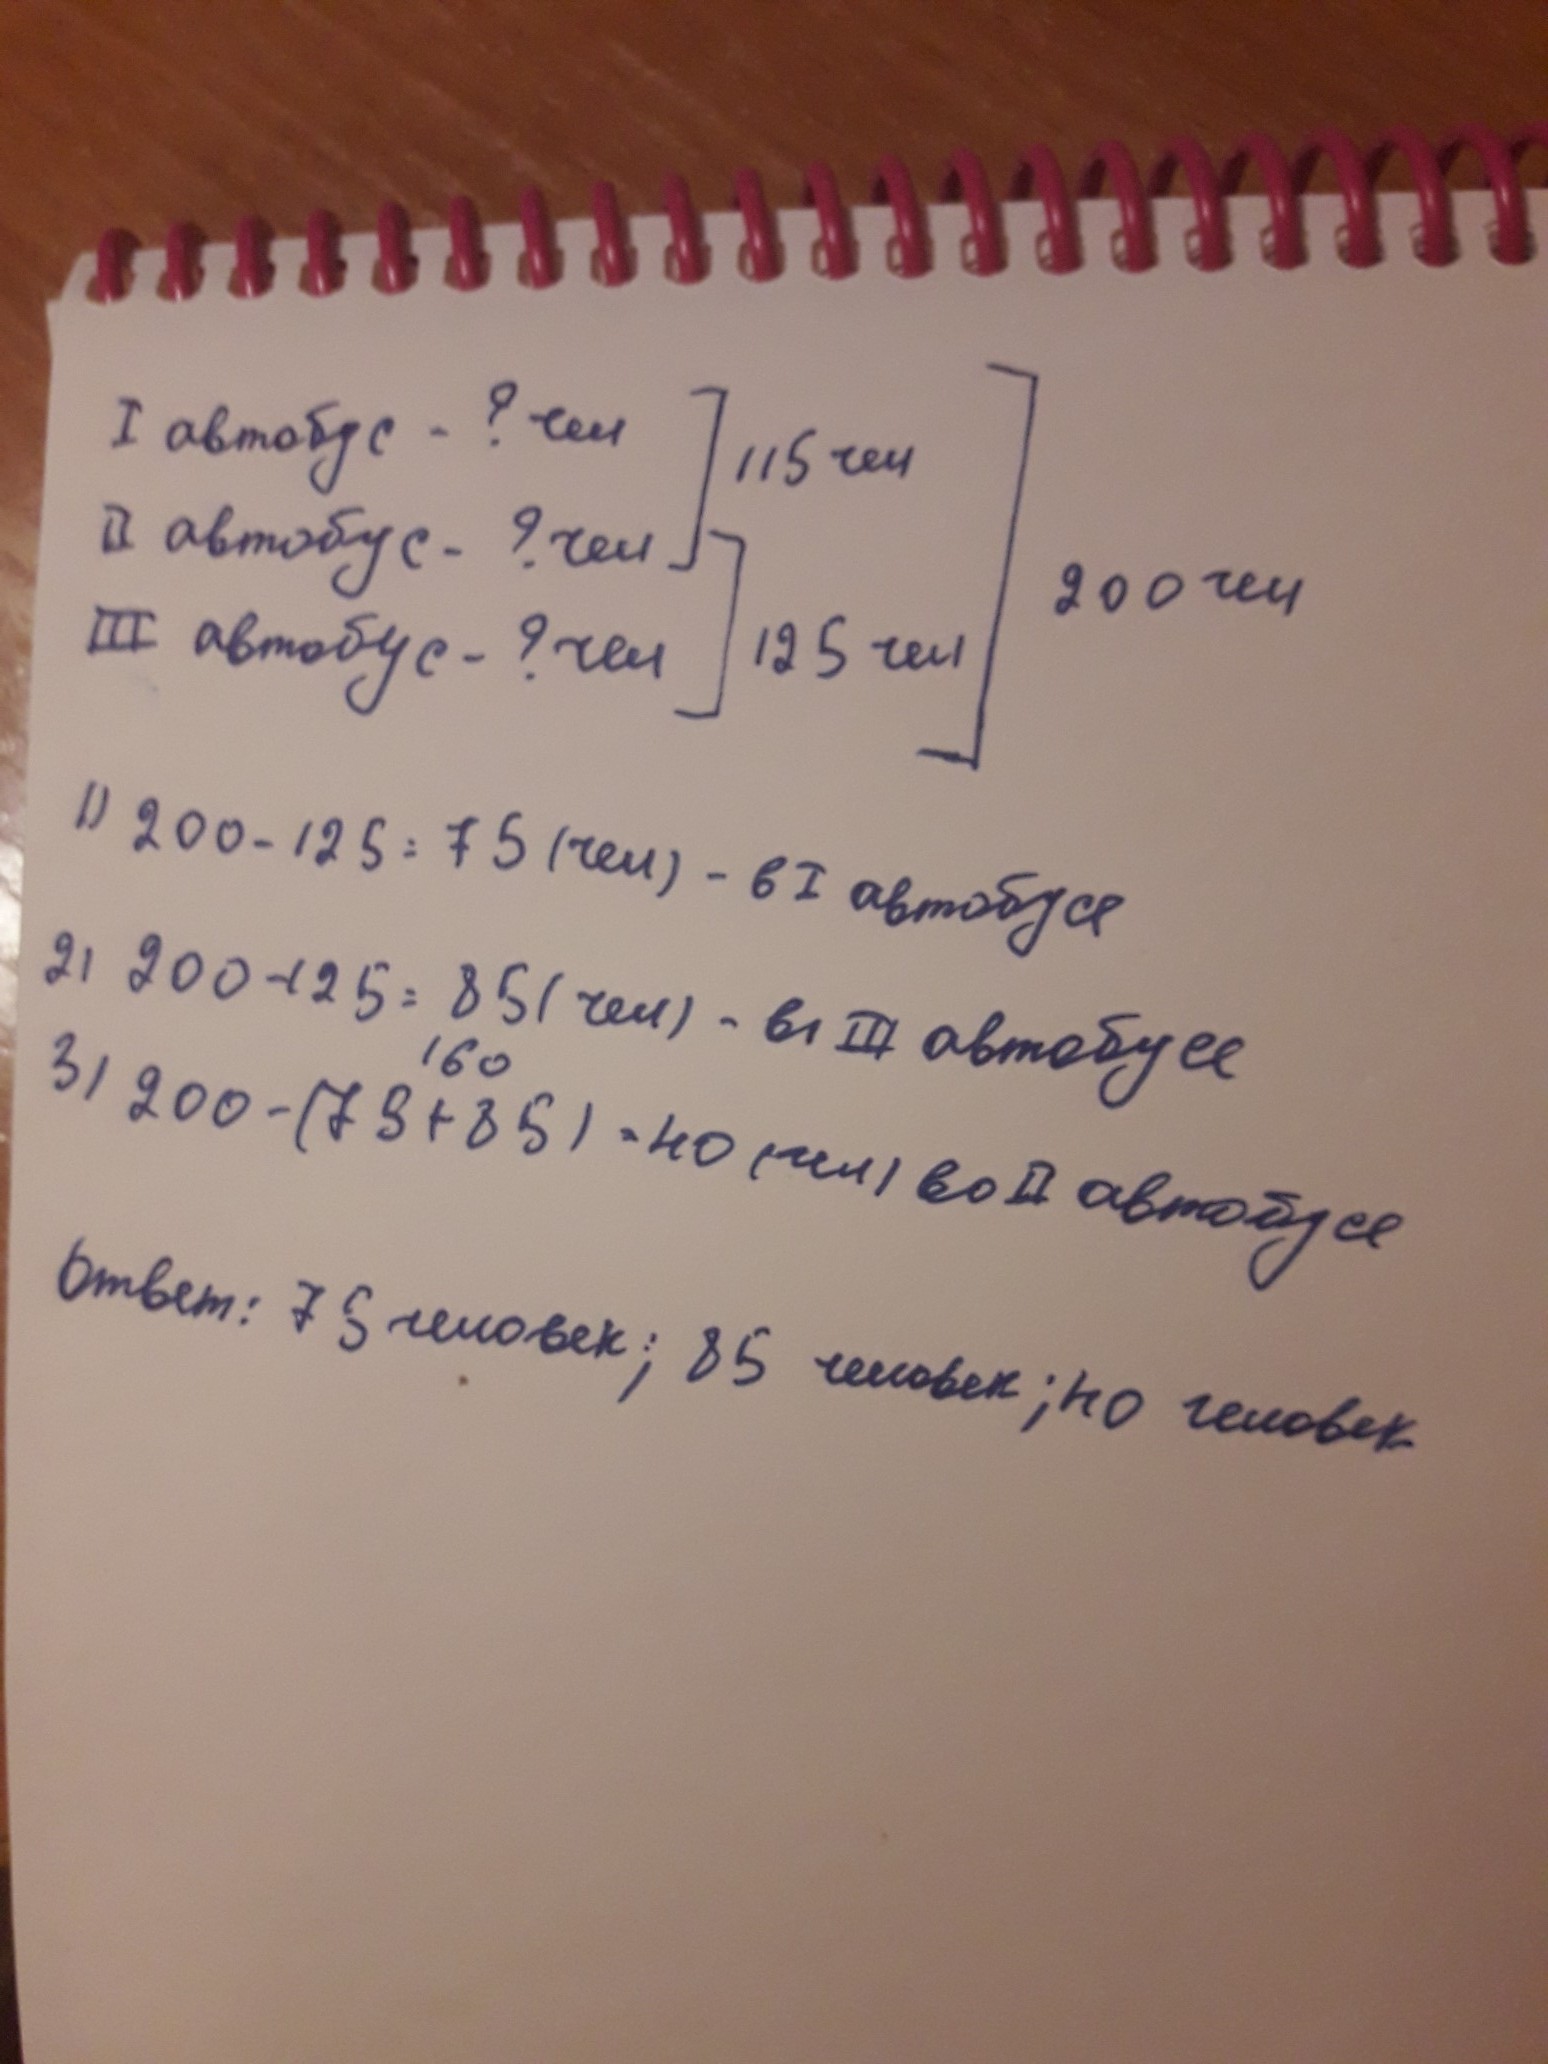 I автобус - ? чел
II автобус - ? чел
115 чел
III автобус - ? чел
125 чел
200 чел
1) 200-125=75 (чел) - в I автобусе
2) 200-125=85 (чел) - в III автобусе
160
3) 200-(75+85)=40 (чел) во II автобусе
Ответ: 75 человек; 85 человек; 40 человек